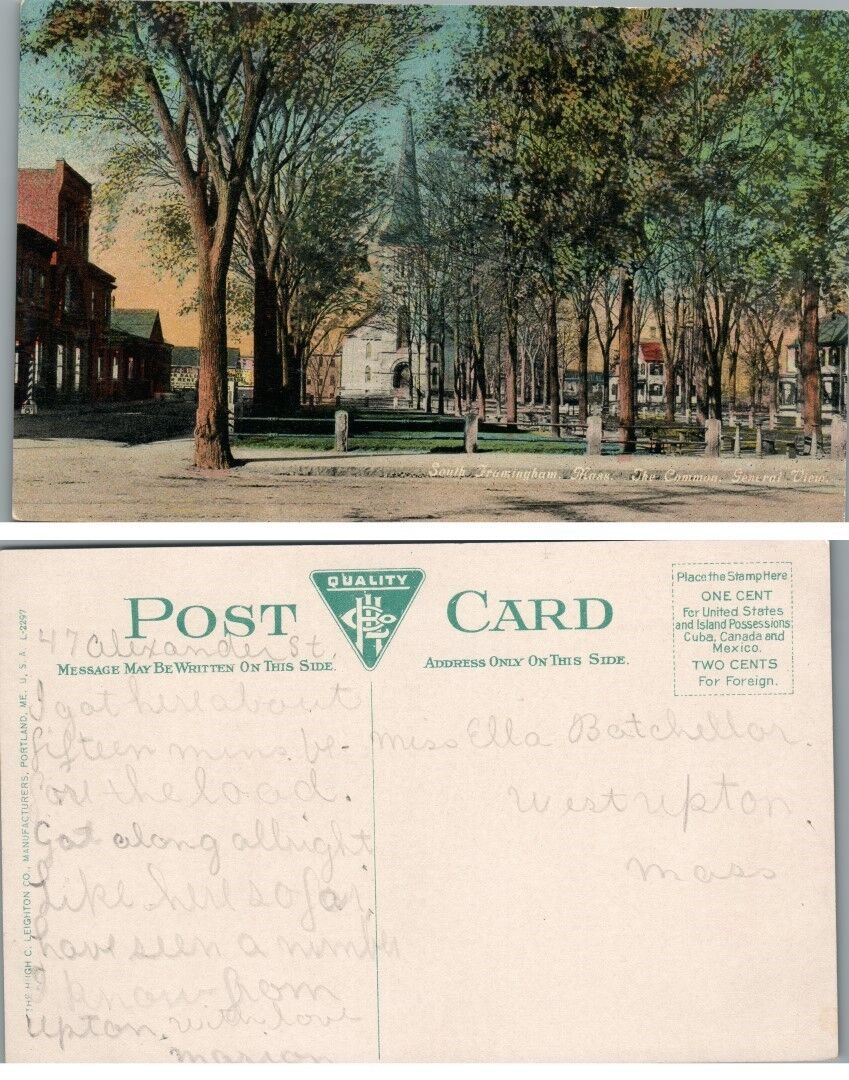 South Framingham, Mass. The Common, General View.
QUALITY
POST CARD
47 Alexander St.
MESSAGE MAY BE WRITTEN ON THIS SIDE.
I got here about
fifteen mins. be-
fore the load.
Got along allright
Like here so far.
have seen a number
I know from
Upton. with love
marion
ADDRESS ONLY ON THIS SIDE.
Place the Stamp Here
ONE CENT
For United States
and Island Possessions
Cuba, Canada and
Mexico.
TWO CENTS
For Foreign.
miss Ella Batchellor.
West Upton
mass
THE HUGH C. LEIGHTON CO., MANUFACTURERS, PORTLAND, ME. U. S. A. L-2297